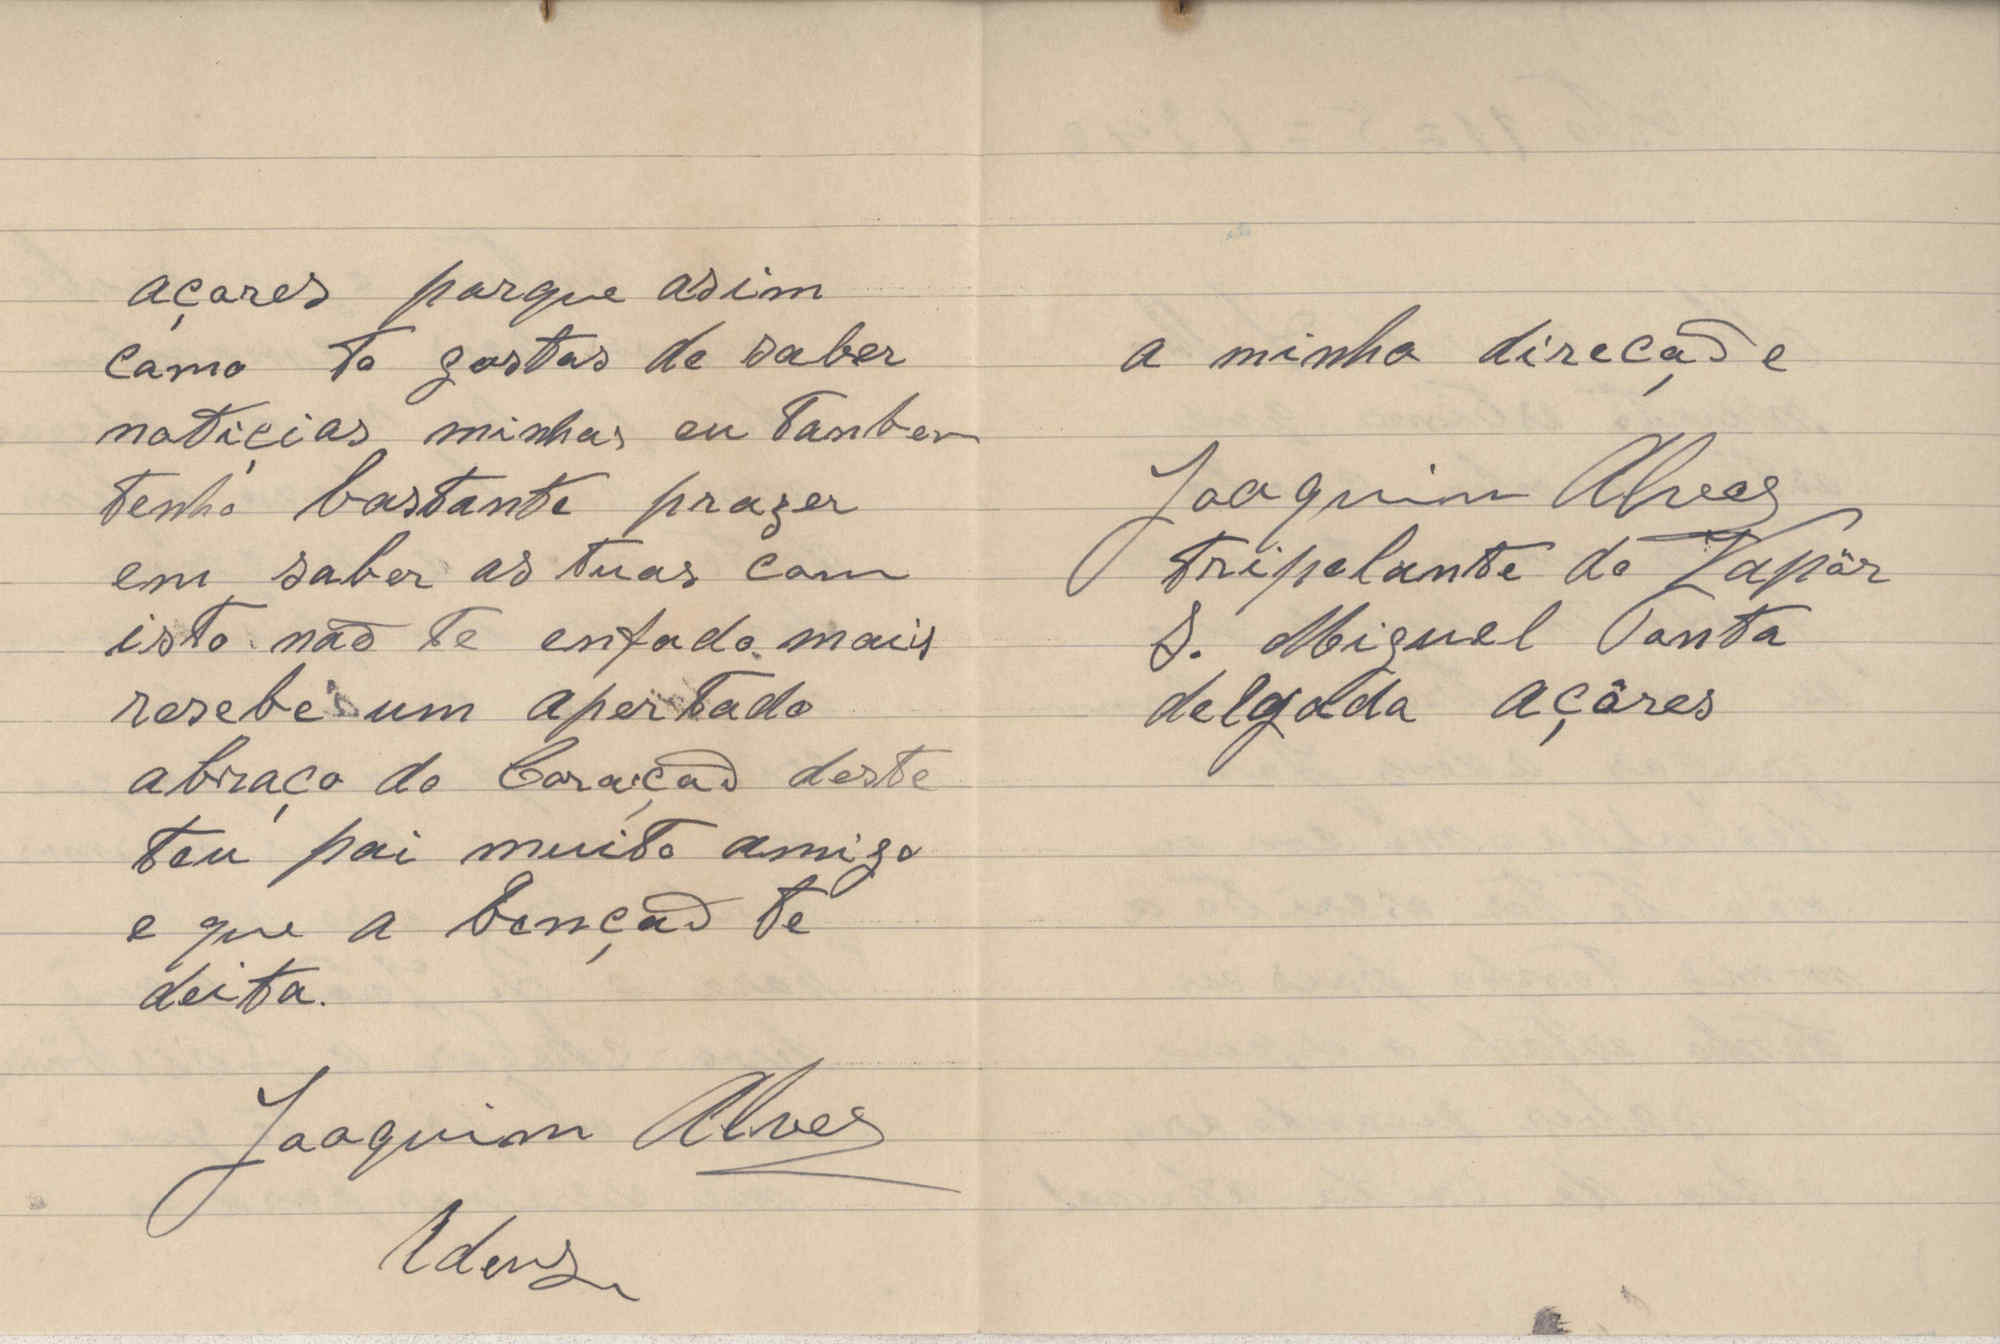 açores porque asim
como to gostas de saber
notiçias minhas eu tanbem
tenho bastante prazer
em saber as tuas com
isto não te enfado mais
resebe um apertado
abraço do Coração deste
teu pai muito amigo
e que a benção te
deita.
Joaquim Alves
Adeus
a minha direcção e
Joaquim Alves
tripelante do Vapôr
S. Miguel Ponta
delgada açôres